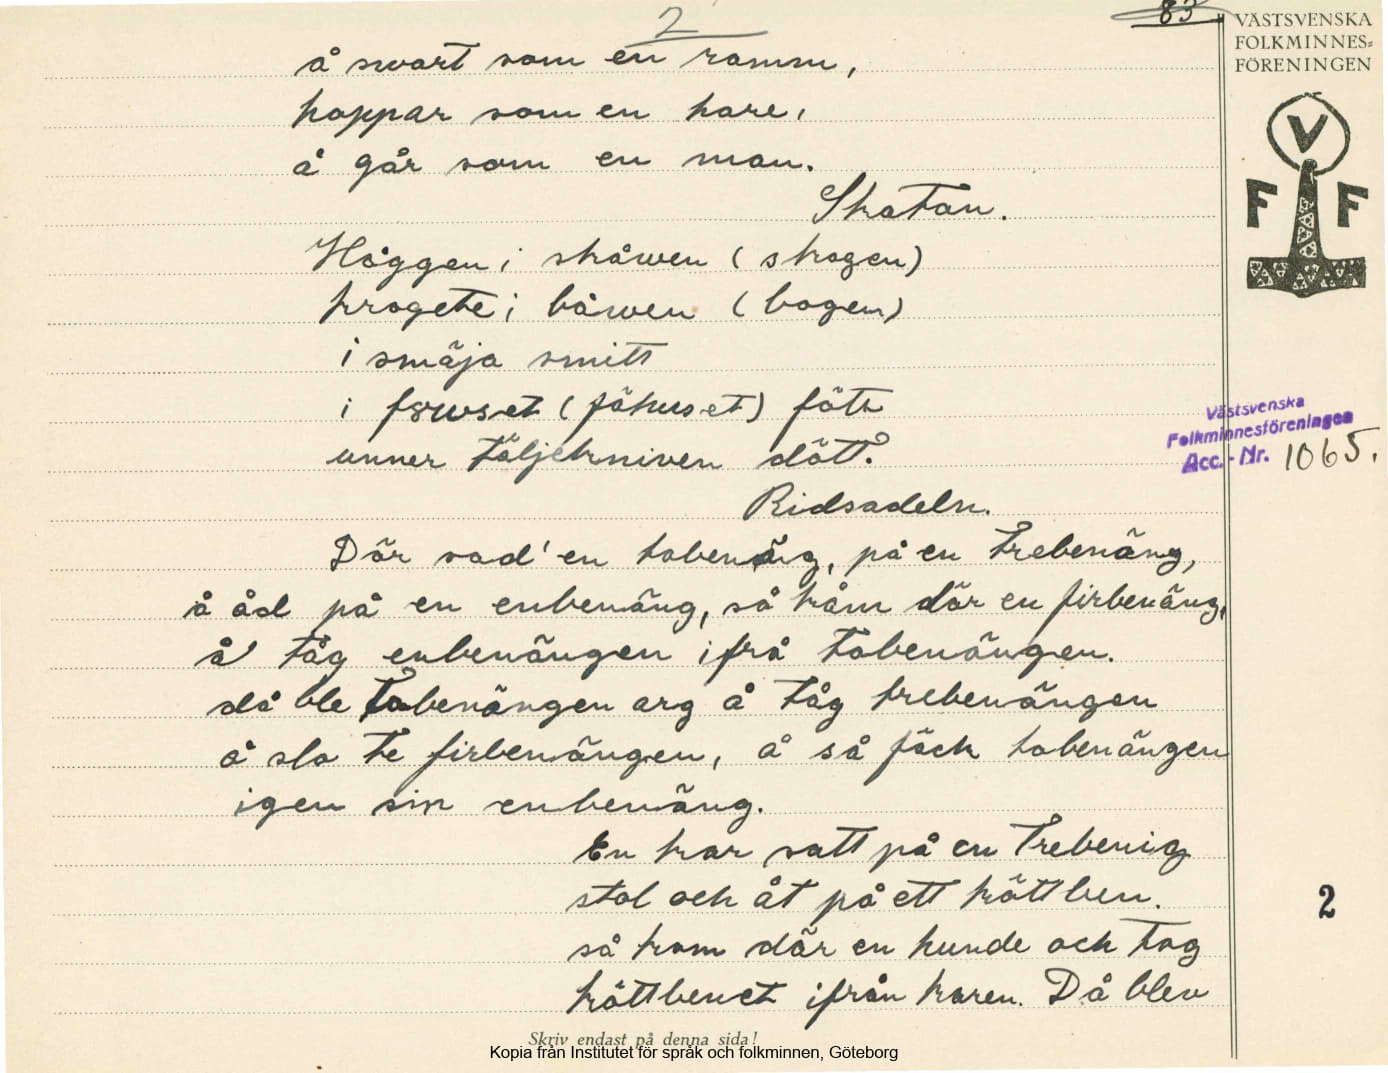 2
83
VÄSTSVENSKA
FOLKMINNES=
FÖRENINGEN
V
F F
å swart som en ramm,
hoppar som en hare,
å går som en man.
Skatan.
Höggen i skåwen (skogen)
krogete i båwen (bogen)
i smäja smitt
i föwset (föhuset) fött
unner täljekniven dött.
Ridsadeln.
Där sad' en tobenäng, på en trebenäng,
å åd på en enbenäng, så kåm där en firbenäng,
å tåg enbenängen ifrå tobenängen.
då ble tobenängen arg å tåg trebenängen
å slo te firbenängen, å så fäck tobenängen
igen sin enbenäng.
En kar satt på en trebenig
stol och åt på ett köttben.
så kom där en hunde och tog
köttbenet ifrån karen. Då blev
Västsvenska
Folkminnesföreningen
Acc.-Nr. 1065.
2
Skriv endast på denna sida!
Kopia från Institutet för språk och folkminnen, Göteborg